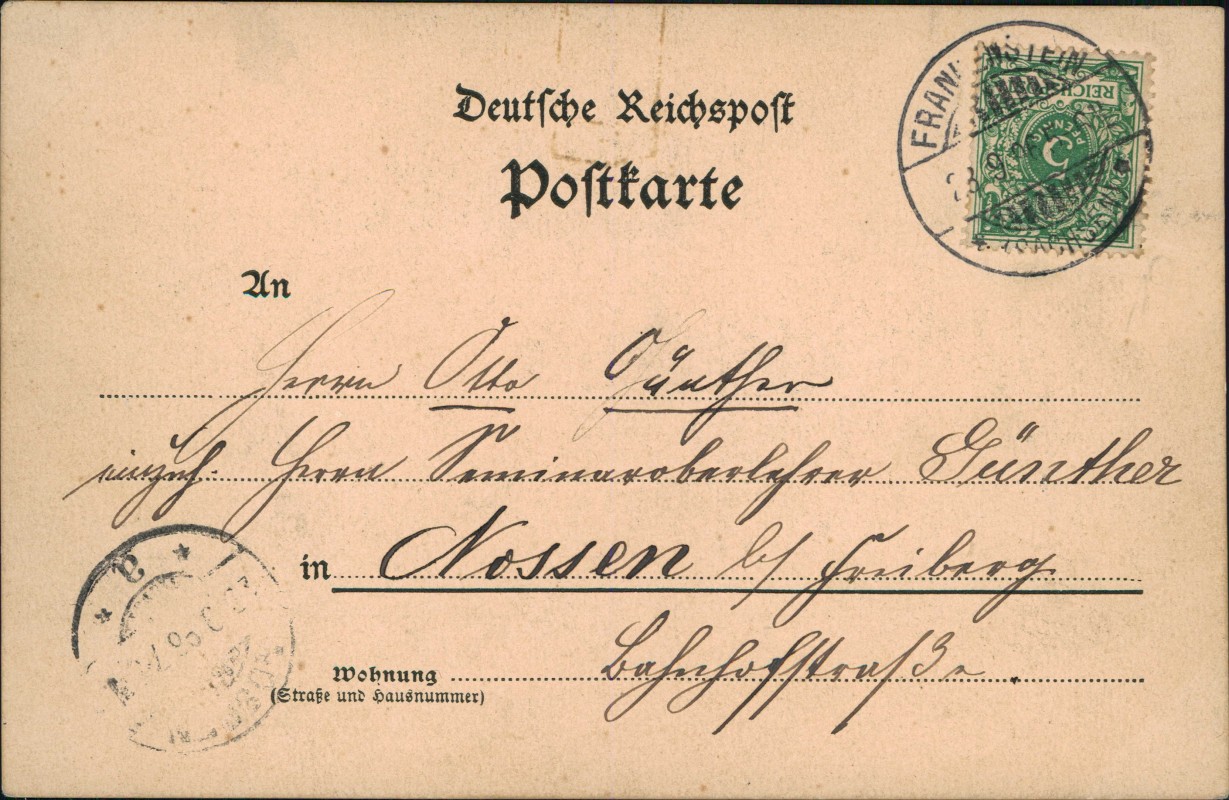 Deutsche Reichspost
Postkarte
FRANKENSTEIN
(SACHSEN)
REICHSPOST
5
PFENNIG
An
Herrn Otto Günther
Herrn Seminaroberlehrer Günther
in Nossen b/ Freiberg
Bahnhofstraße
Wohnung
(Straße und Hausnummer)